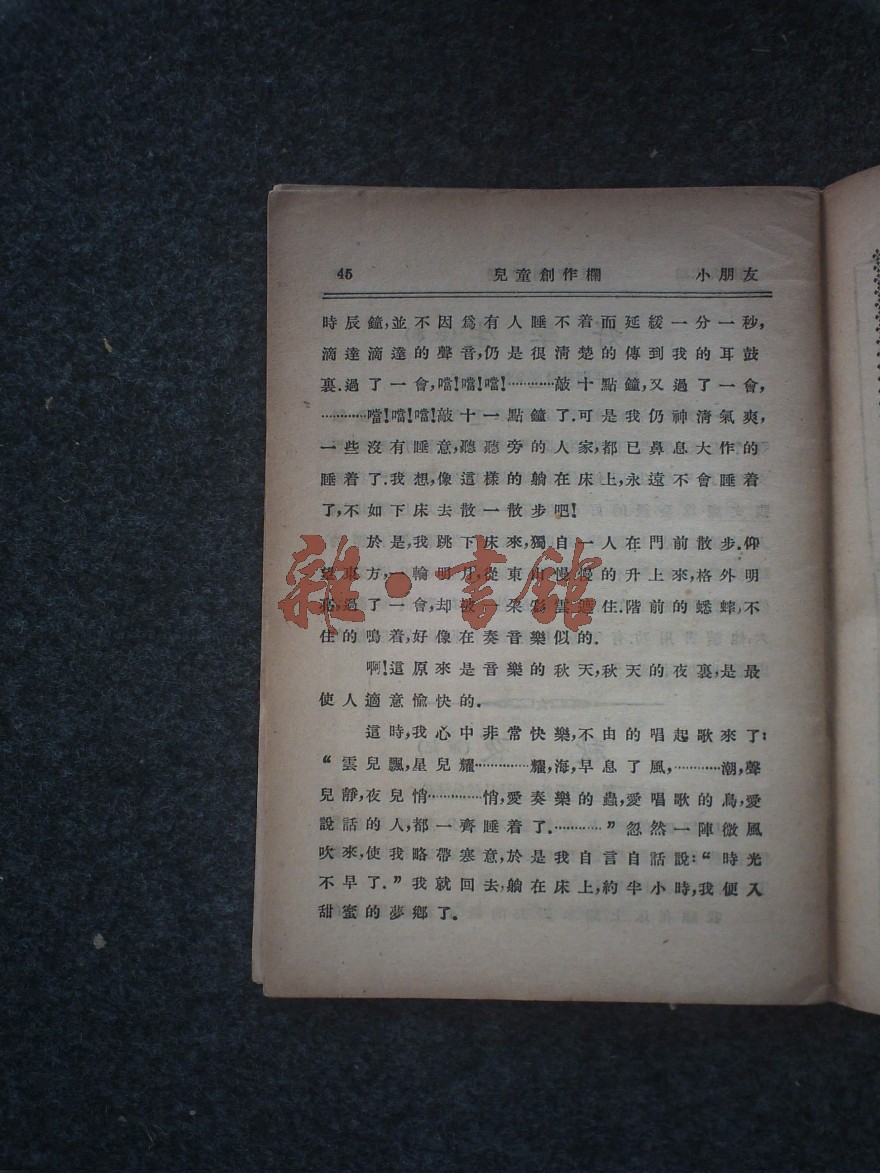 45 兒童創作欄 小朋友
時辰鐘,並不因爲有人睡不着而延緩一分一秒,
滴達滴達的聲音,仍是很清楚的傳到我的耳鼓
裏.過了一會,噹!噹!噹!…………敲十點鐘,又過了一會,
…………噹!噹!噹!敲十一點鐘了.可是我仍神清氣爽,
一些沒有睡意,聽聽旁的人家,都已鼻息大作的
睡着了.我想,像這樣的躺在床上,永遠不會睡着
了,不如下床去散一散步吧!
於是,我跳下床來,獨自一人在門前散步.仰
望東方,一輪明月,從東山慢慢的升上來,格外明
亮,過了一會,却被一朶彩雲遮住.階前的蟋蟀,不
住的鳴着,好像在奏音樂似的.
啊!這原來是音樂的秋天,秋天的夜裏,是最
使人適意愉快的.
這時,我心中非常快樂,不由的唱起歌來了:
“雲兒飄,星兒耀…………耀,海,早息了風,…………潮,聲
兒靜,夜兒悄…………悄,愛奏樂的蟲,愛唱歌的鳥,愛
說話的人,都一齊睡着了.…………”忽然一陣微風
吹來,使我略帶寒意,於是我自言自話說:“時光
不早了.”我就回去,躺在床上,約半小時,我便入
甜蜜的夢鄉了.
雜·書館